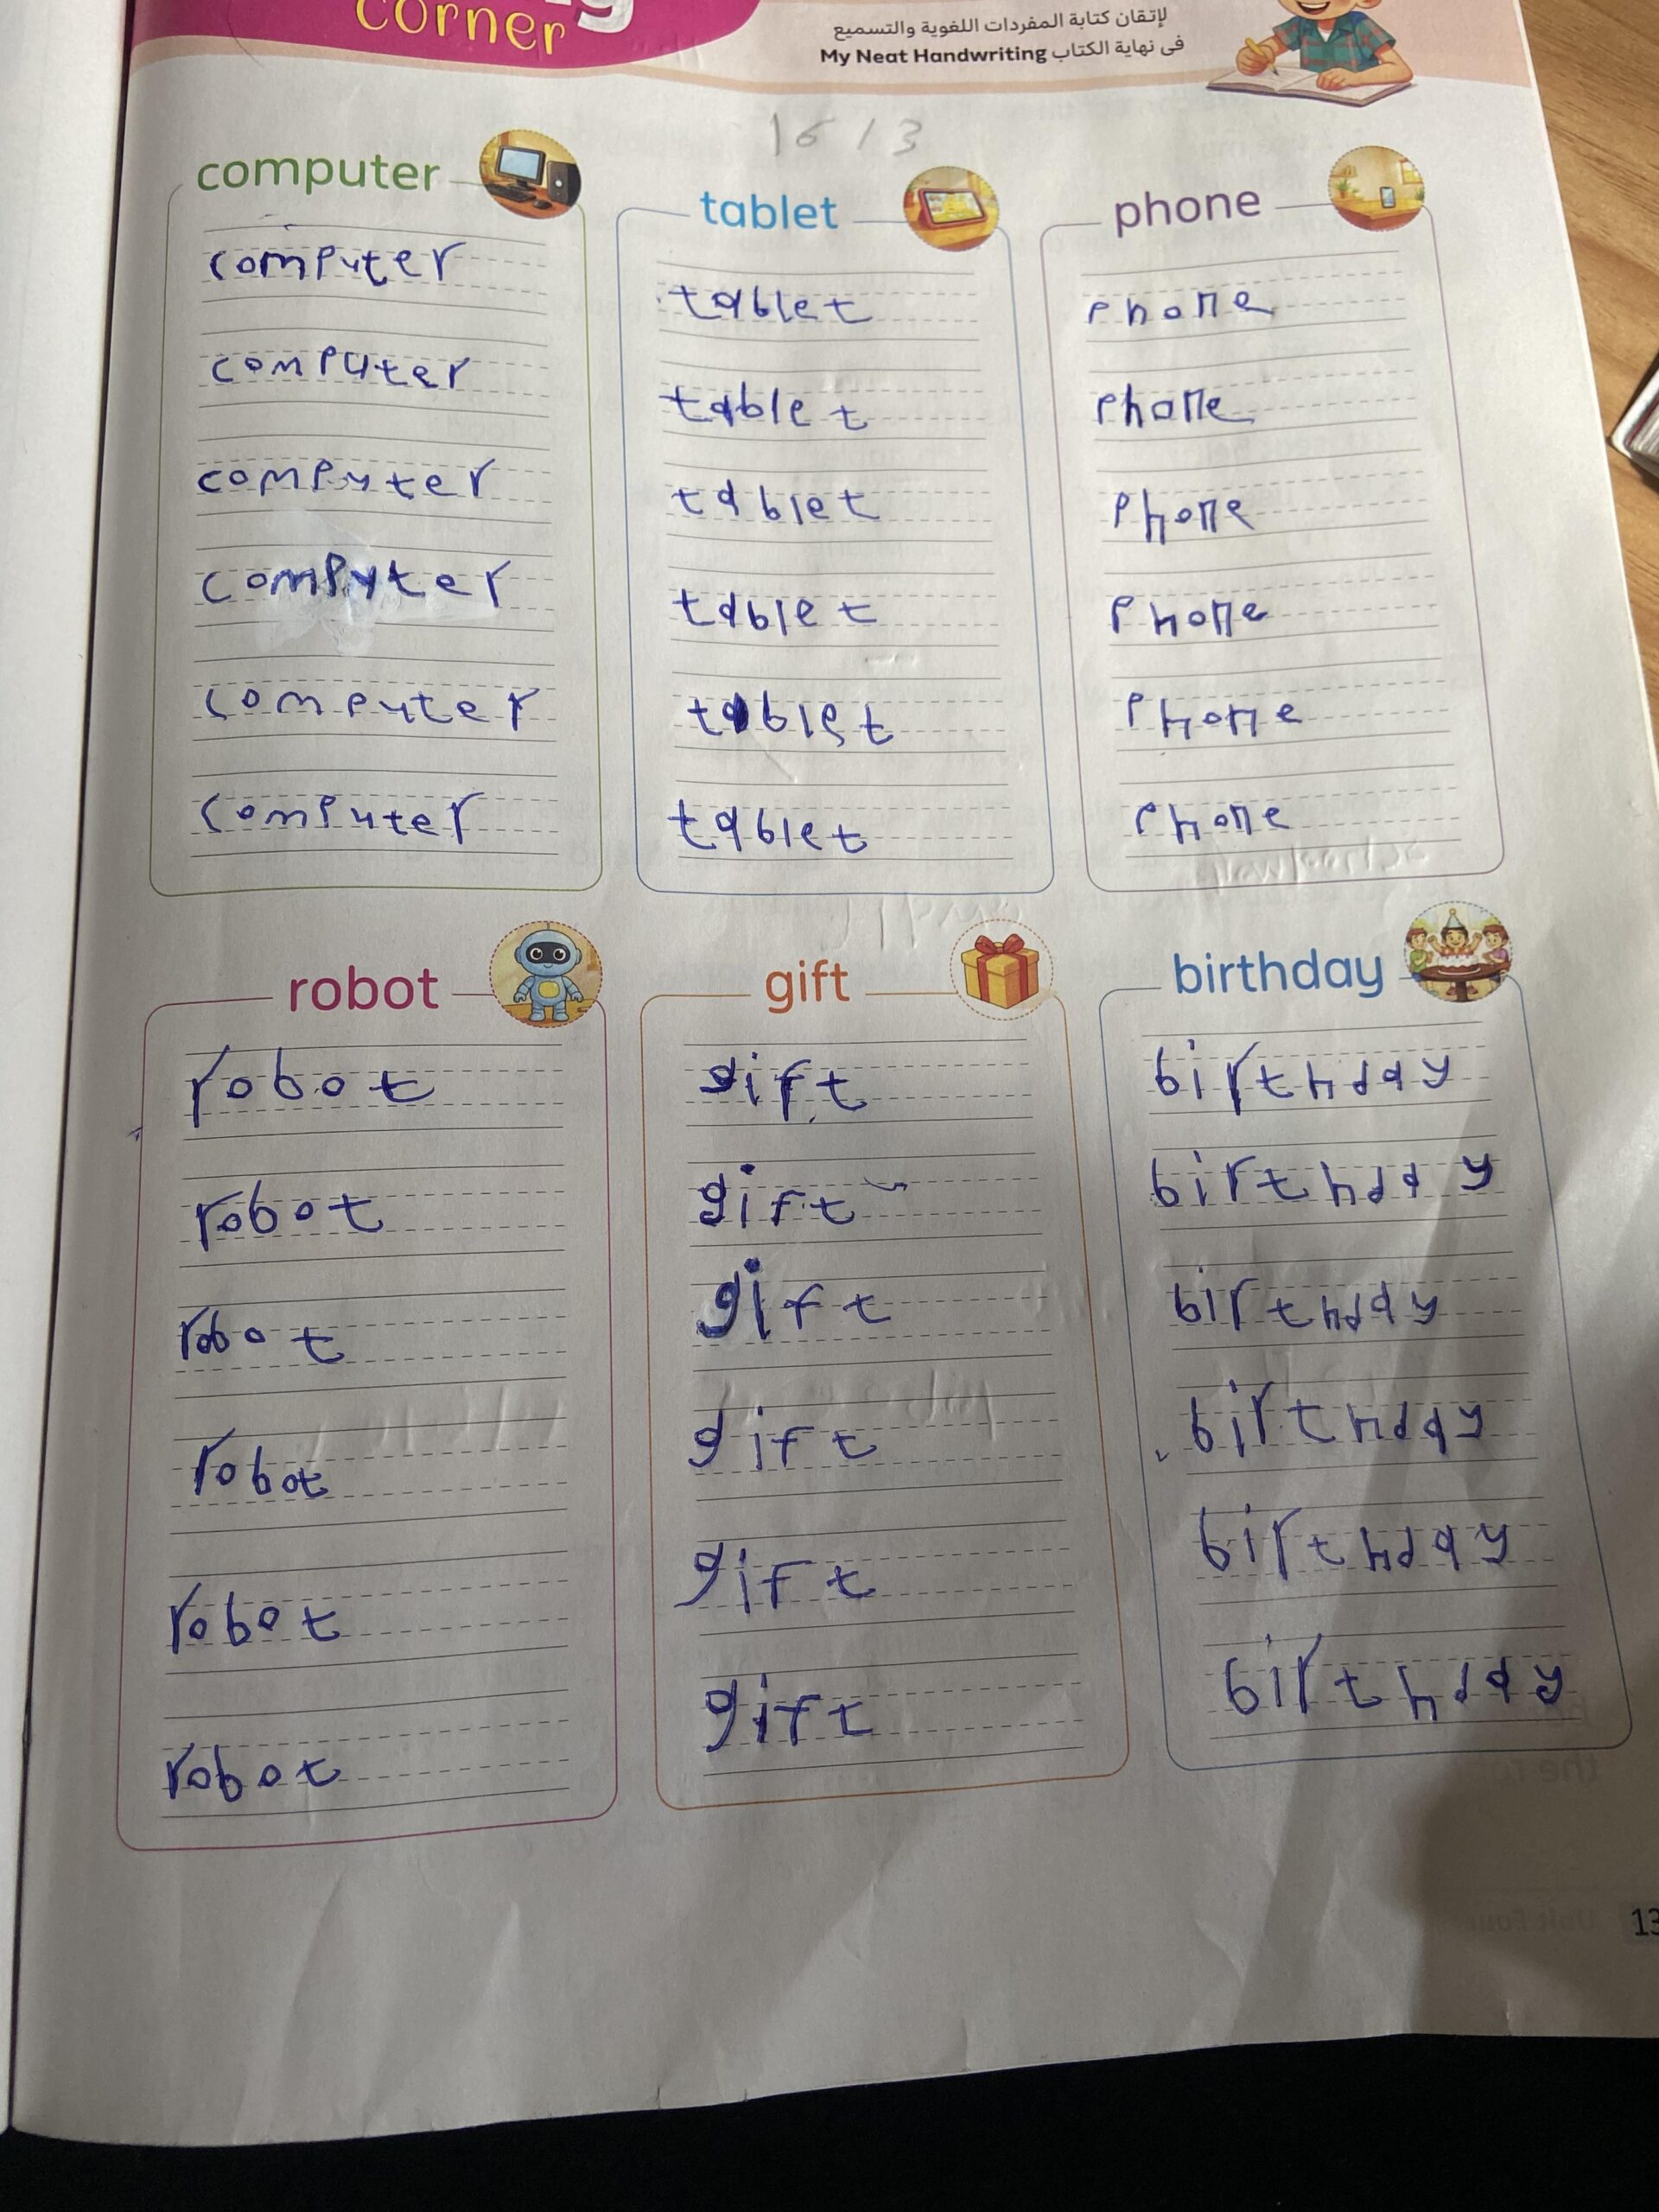 corner
لإتقان كتابة المفردات اللغوية والتسميع
في نهاية الكتاب My Neat Handwriting
16 / 3
computer
computer
computer
computer
computer
computer
computer
tablet
tablet
tablet
tablet
tablet
tablet
tablet
phone
phone
phone
phone
phone
phone
phone
robot
robot
robot
robot
robot
robot
robot
gift
gift
gift
gift
gift
gift
gift
birthday
birthday
birthday
birthday
birthday
birthday
birthday
13